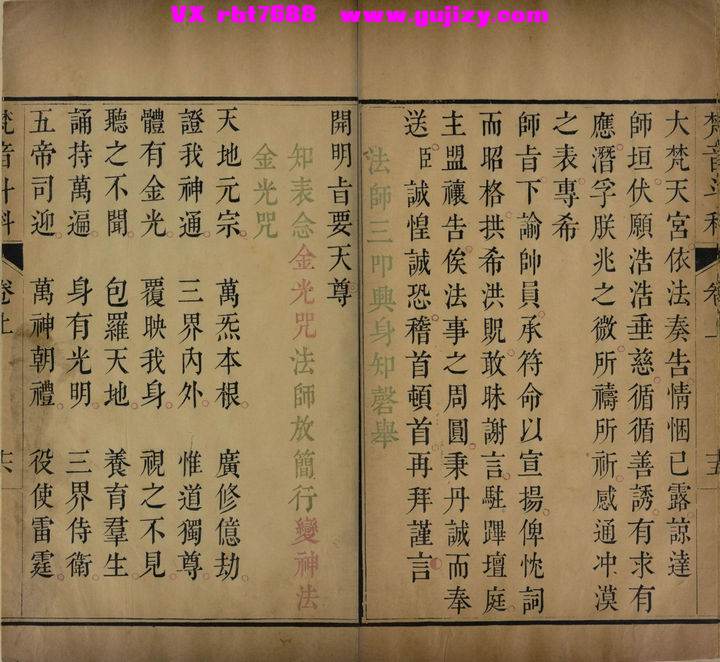 VX rbt7688 www.gujizy.com
大梵天宮依法奏告情悃已露諒達
師垣伏願浩浩垂慈循循善誘有求有
應潛孚朕兆之微所禱所祈感通冲漠
之表專希
師旨下諭帥員承符命以宣揚俾忱詞
而昭格拱希洪貺敢昧謝言駐蹕壇庭
主盟禳告俟法事之周圓秉丹誠而奉
送臣誠惶誠恐稽首頓首再拜謹言
法師三叩興身知磬舉
開明旨要天尊
知表念金光咒法師放簡行變神法
金光咒
天地元宗 萬炁本根 廣修億劫
證我神通 三界內外 惟道獨尊
體有金光 覆映我身 視之不見
聽之不聞 包羅天地 養育羣生
誦持萬遍 身有光明 三界侍衛
五帝司迎 萬神朝禮 役使雷霆
梵音斗科 卷上 十六